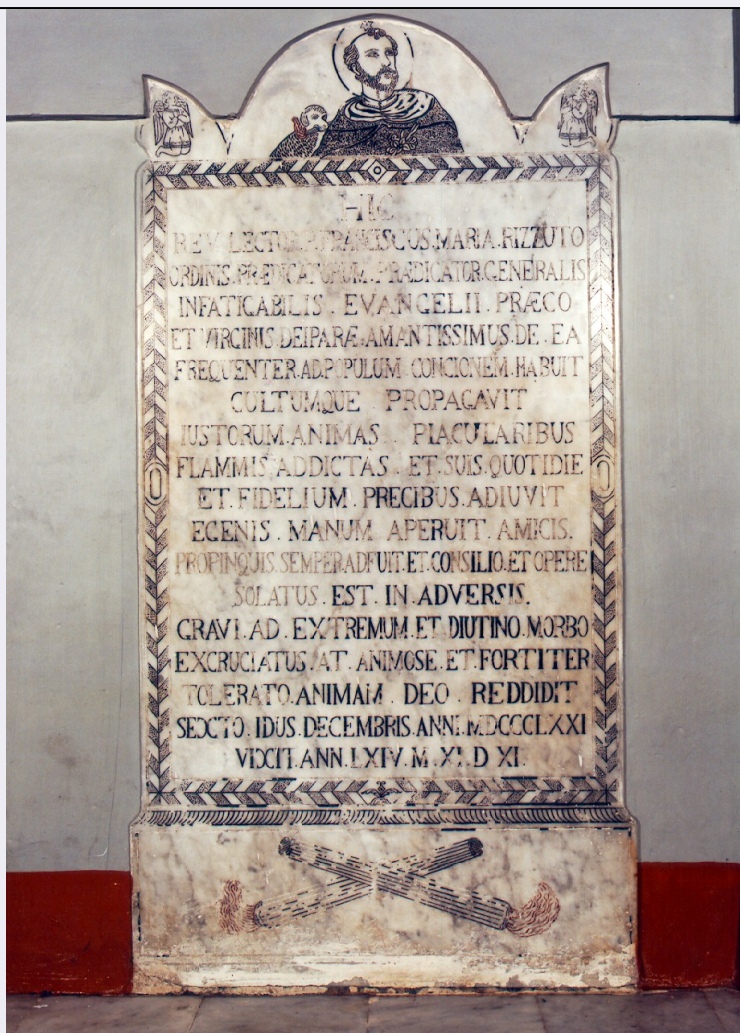 HIC
REV. LECTOR. P. FRANCISCUS. MARIA. RIZZUTO
ORDINIS. PRÆDICATORUM. PRÆDICATOR. GENERALIS
INFATICABILIS. EVANGELII. PRÆCO
ET VIRGINIS DEIPARÆ. AMANTISSIMUS. DE. EA
FREQUENTER. AD. POPULUM CONCIONEM. HABUIT
CULTUMQUE PROPAGAVIT
IUSTORUM. ANIMAS. PIACULARIBUS
FLAMMIS ADDICTAS. ET. SUIS. QUOTIDIE
ET. FIDELIUM. PRECIBUS. ADIUVIT
EGENIS. MANUM APERUIT. AMICIS.
PROPINQUIS. SEMPER. ADFUIT. ET. CONSILIO. ET OPERE
SOLATUS. EST. IN. ADVERSIS.
GRAVI. AD. EXTREMUM. ET DIUTINO. MORBO
EXCRUCIATUS. AT. ANIMOSE. ET. FORTITER
TOLERATO. ANIMAM. DEO. REDDIDIT
SEXTO. IDUS. DECEMBRIS. ANNI. MDCCCLXXI
VIXIT. ANN. LXIV. M. XI. D XI.